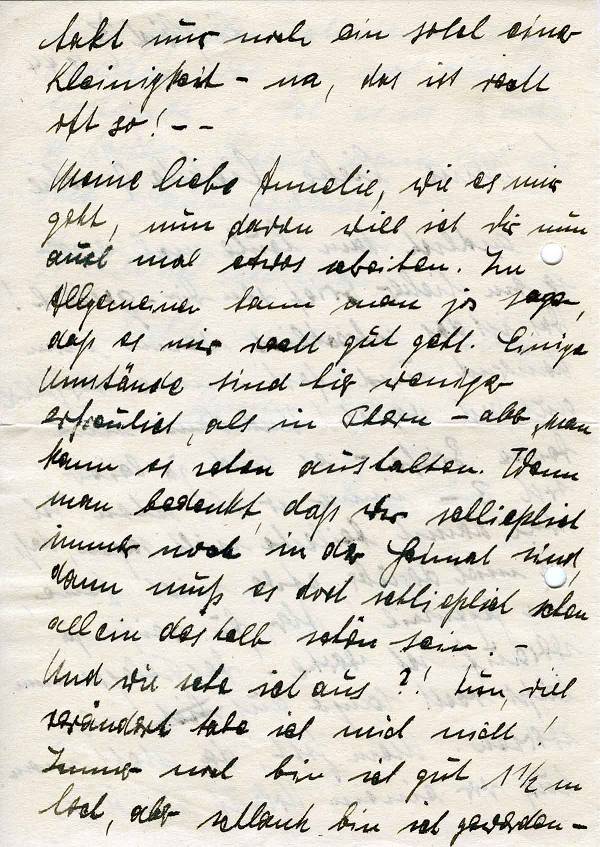 nur noch ein solch eine
Kleinigkeit – na, das ist recht
oft so! – –
Meine liebe Annelie, wie es mir
geht, nun davon will ich Dir nun
auch mal etwas schreiben. Im
Allgemeinen kann man ja sagen,
daß es mir recht gut geht. Einige
Umstände sind hier weniger
erfreulich, als in Thorn – aber man
kann es schon aushalten. Wenn
man bedenkt, daß wir schließlich
immer noch in der Heimat sind,
dann muß es doch schließlich schon
allein deshalb schön sein. –
Und wie sehe ich aus?! Nun, viel
verändert habe ich mich nicht!
Immer noch bin ich gut 1 1/2 m
hoch, aber schlank bin ich geworden –